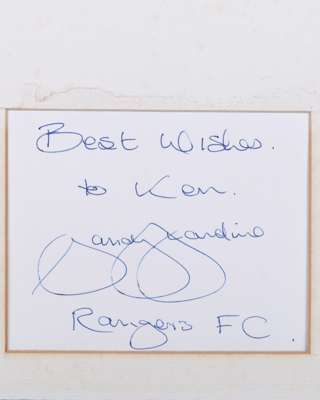 Best Wishes.
to Ken.
Sandy Jardine
Rangers FC.